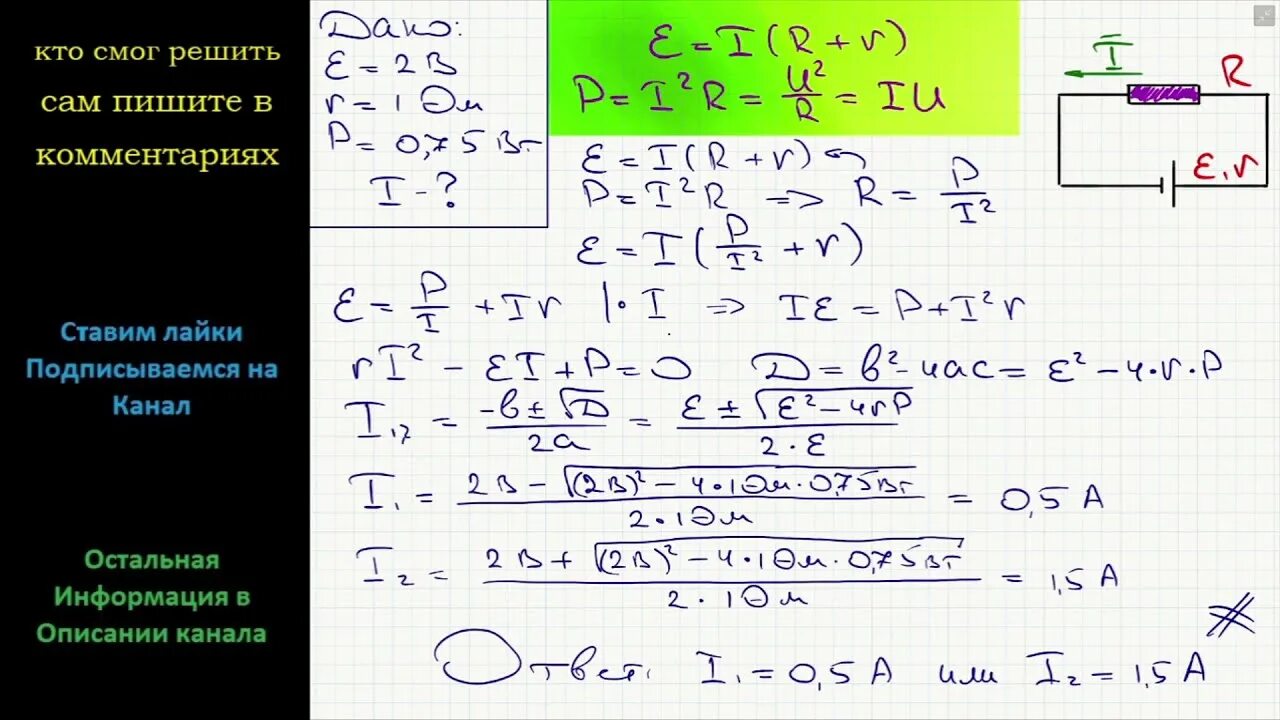 кто смог решить
сам пишите в
комментариях
Ставим лайки
Подписываемся на
Канал
Остальная
Информация в
Описании канала
Дано:
ε = 2 В
r = 1 Ом
P = 0,75 Вт
I - ?
ε = I (R + r)
P = I² R = U²/R = IU
I
R
ε, r
ε = I (R + r)
P = I² R => R = P/I²
ε = I (P/I² + r)
ε = P/I + Ir |· I => Iε = P + I² r
r I² - εI + P = 0 Д = в² - 4ас = ε² - 4·r·P
I₁,₂ = (-в ± √Д)/2а = (ε ± √(ε² - 4rP))/(2·ε)
I₁ = (2В - √((2В)² - 4·1Ом·0,75Вт))/(2·1Ом) = 0,5 А
I₂ = (2В + √((2В)² - 4·1Ом·0,75Вт))/(2·1Ом) = 1,5 А
Ответ: I₁ = 0,5 А или I₂ = 1,5 А